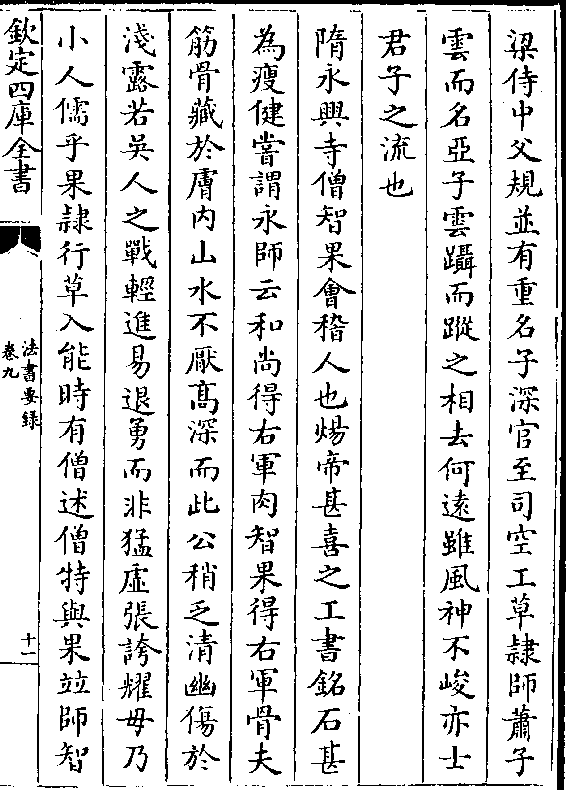 梁侍中父規並有重名子深官至司空工草隸師蕭子
雲而名亞子雲躡而蹤之相去何遠雖風神不峻亦士
君子之流也
隋永興寺僧智果會稽人也煬帝甚喜之工書銘石甚
為瘦健嘗謂永師云和尚得右軍肉智果得右軍骨夫
筋骨藏於膚内山水不厭髙深而此公稍乏清幽傷於
淺露若吳人之戰輕進易退勇而非猛虛張誇耀毋乃
小人儒乎果隷行草入能時有僧述僧特與果竝師智
欽定四庫全書
法書要録
卷九
十一